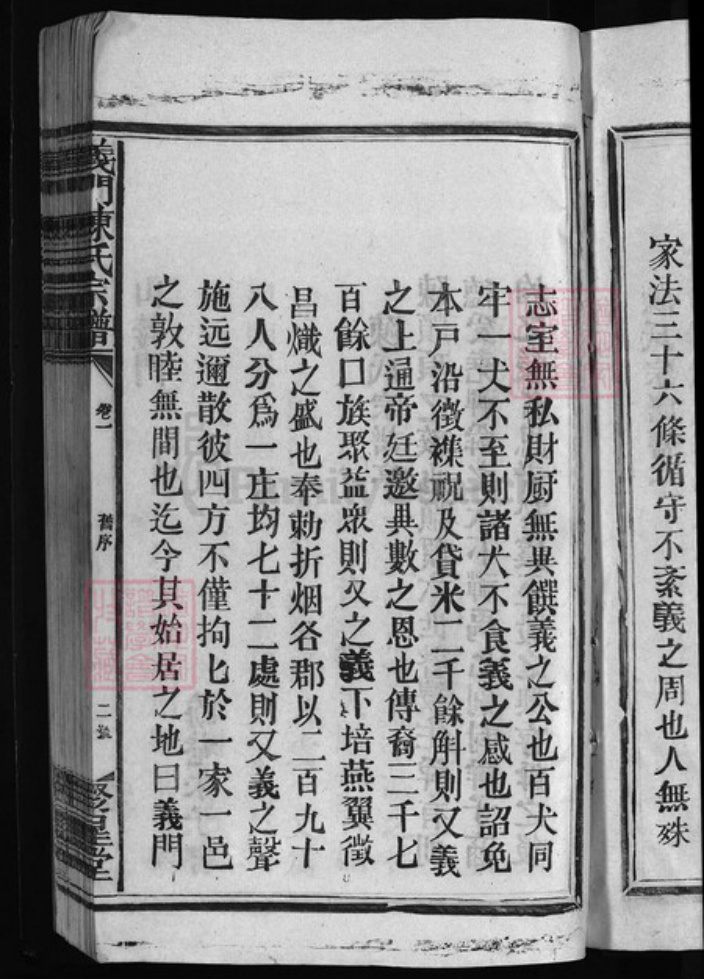 家法三十六條循守不紊義之周也人無殊
志室無私財厨無異饌義之公也百犬同
牢一犬不至則諸犬不食義之感也詔免
本戸沿徵襍祱及貸米二千餘斛則又義
之上通帝廷邀異數之恩也傳裔三千七
百餘口族聚益衆則又之義下培燕翼徵
昌熾之盛也奉勅折烟各郡以二百九十
八人分爲一庄均七十二處則又義之聲
施远邇散彼四方不僅拘匕於一家一邑
之敦睦無間也迄今其始居之地曰義門
義門陳氏宗譜
卷一
舊序
二
聚星堂